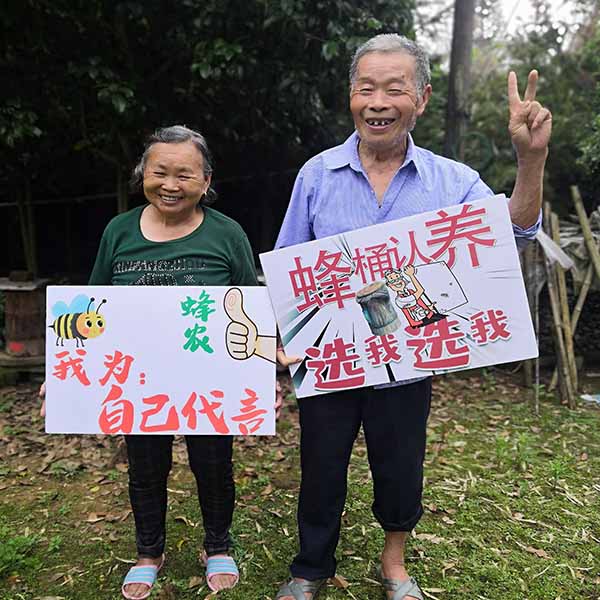 蜂农
我为：
自己代言
蜂桶认养
选我选我